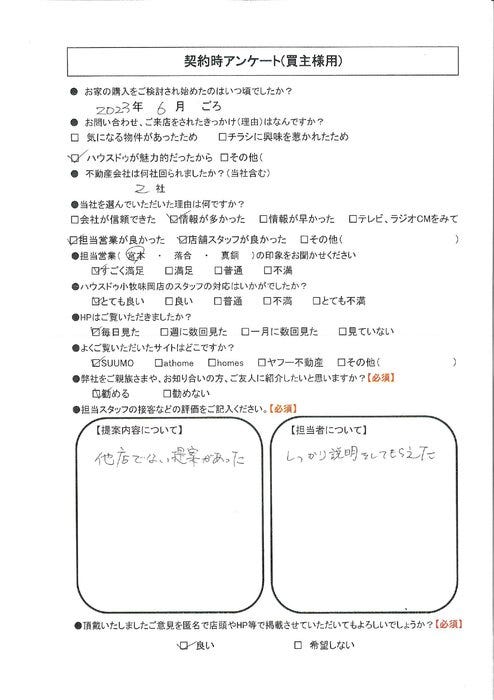 契約時アンケート(買主様用)
● お家の購入をご検討され始めたのはいつ頃でしたか?
2023年 6 月 ごろ
● お問い合わせ、ご来店をされたきっかけ(理由)はなんですか?
□ 気になる物件があったため □チラシに興味を惹かれたため
☑ ハウスドゥが魅力的だったから □その他(
● 不動産会社は何社回られましたか?(当社含む)
2 社
●当社を選んでいただいた理由は何ですか?
□会社が信頼できた ☑情報が多かった □情報が早かった □テレビ、ラジオCMをみて
☑担当営業が良かった ☑店舗スタッフが良かった □その他( )
●担当営業( 宮本 ・ 落合 ・ 真銅 )の印象をお聞かせください
☑すごく満足 □満足 □普通 □不満
●ハウスドゥ小牧味岡店のスタッフの対応はいかがでしたか?
☑とても良い □良い □普通 □不満 □とても不満
●HPはご覧いただきましたか?
☑毎日見た □週に数回見た □一月に数回見た □見ていない
●よくご覧いただいたサイトはどこですか?
☑SUUMO □athome □homes □ヤフー不動産 □その他( )
●弊社をご親族さまや、お知り合いの方、ご友人に紹介したいと思いますか?【必須】
☑勧める □勧めない
●担当スタッフの接客などの評価をご記入ください。【必須】
【提案内容について】
他店でない提案があった
【担当者について】
しっかり説明をしてもらえた
●頂戴いたしましたご意見を匿名で店頭やHP等で掲載させていただいてもよろしいでしょうか?【必須】
☑良い □ 希望しない